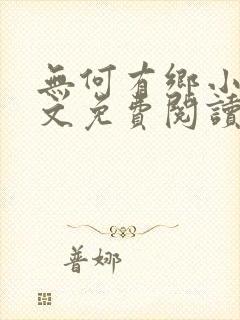 無何有鄉小
文免費閱讀
普娜